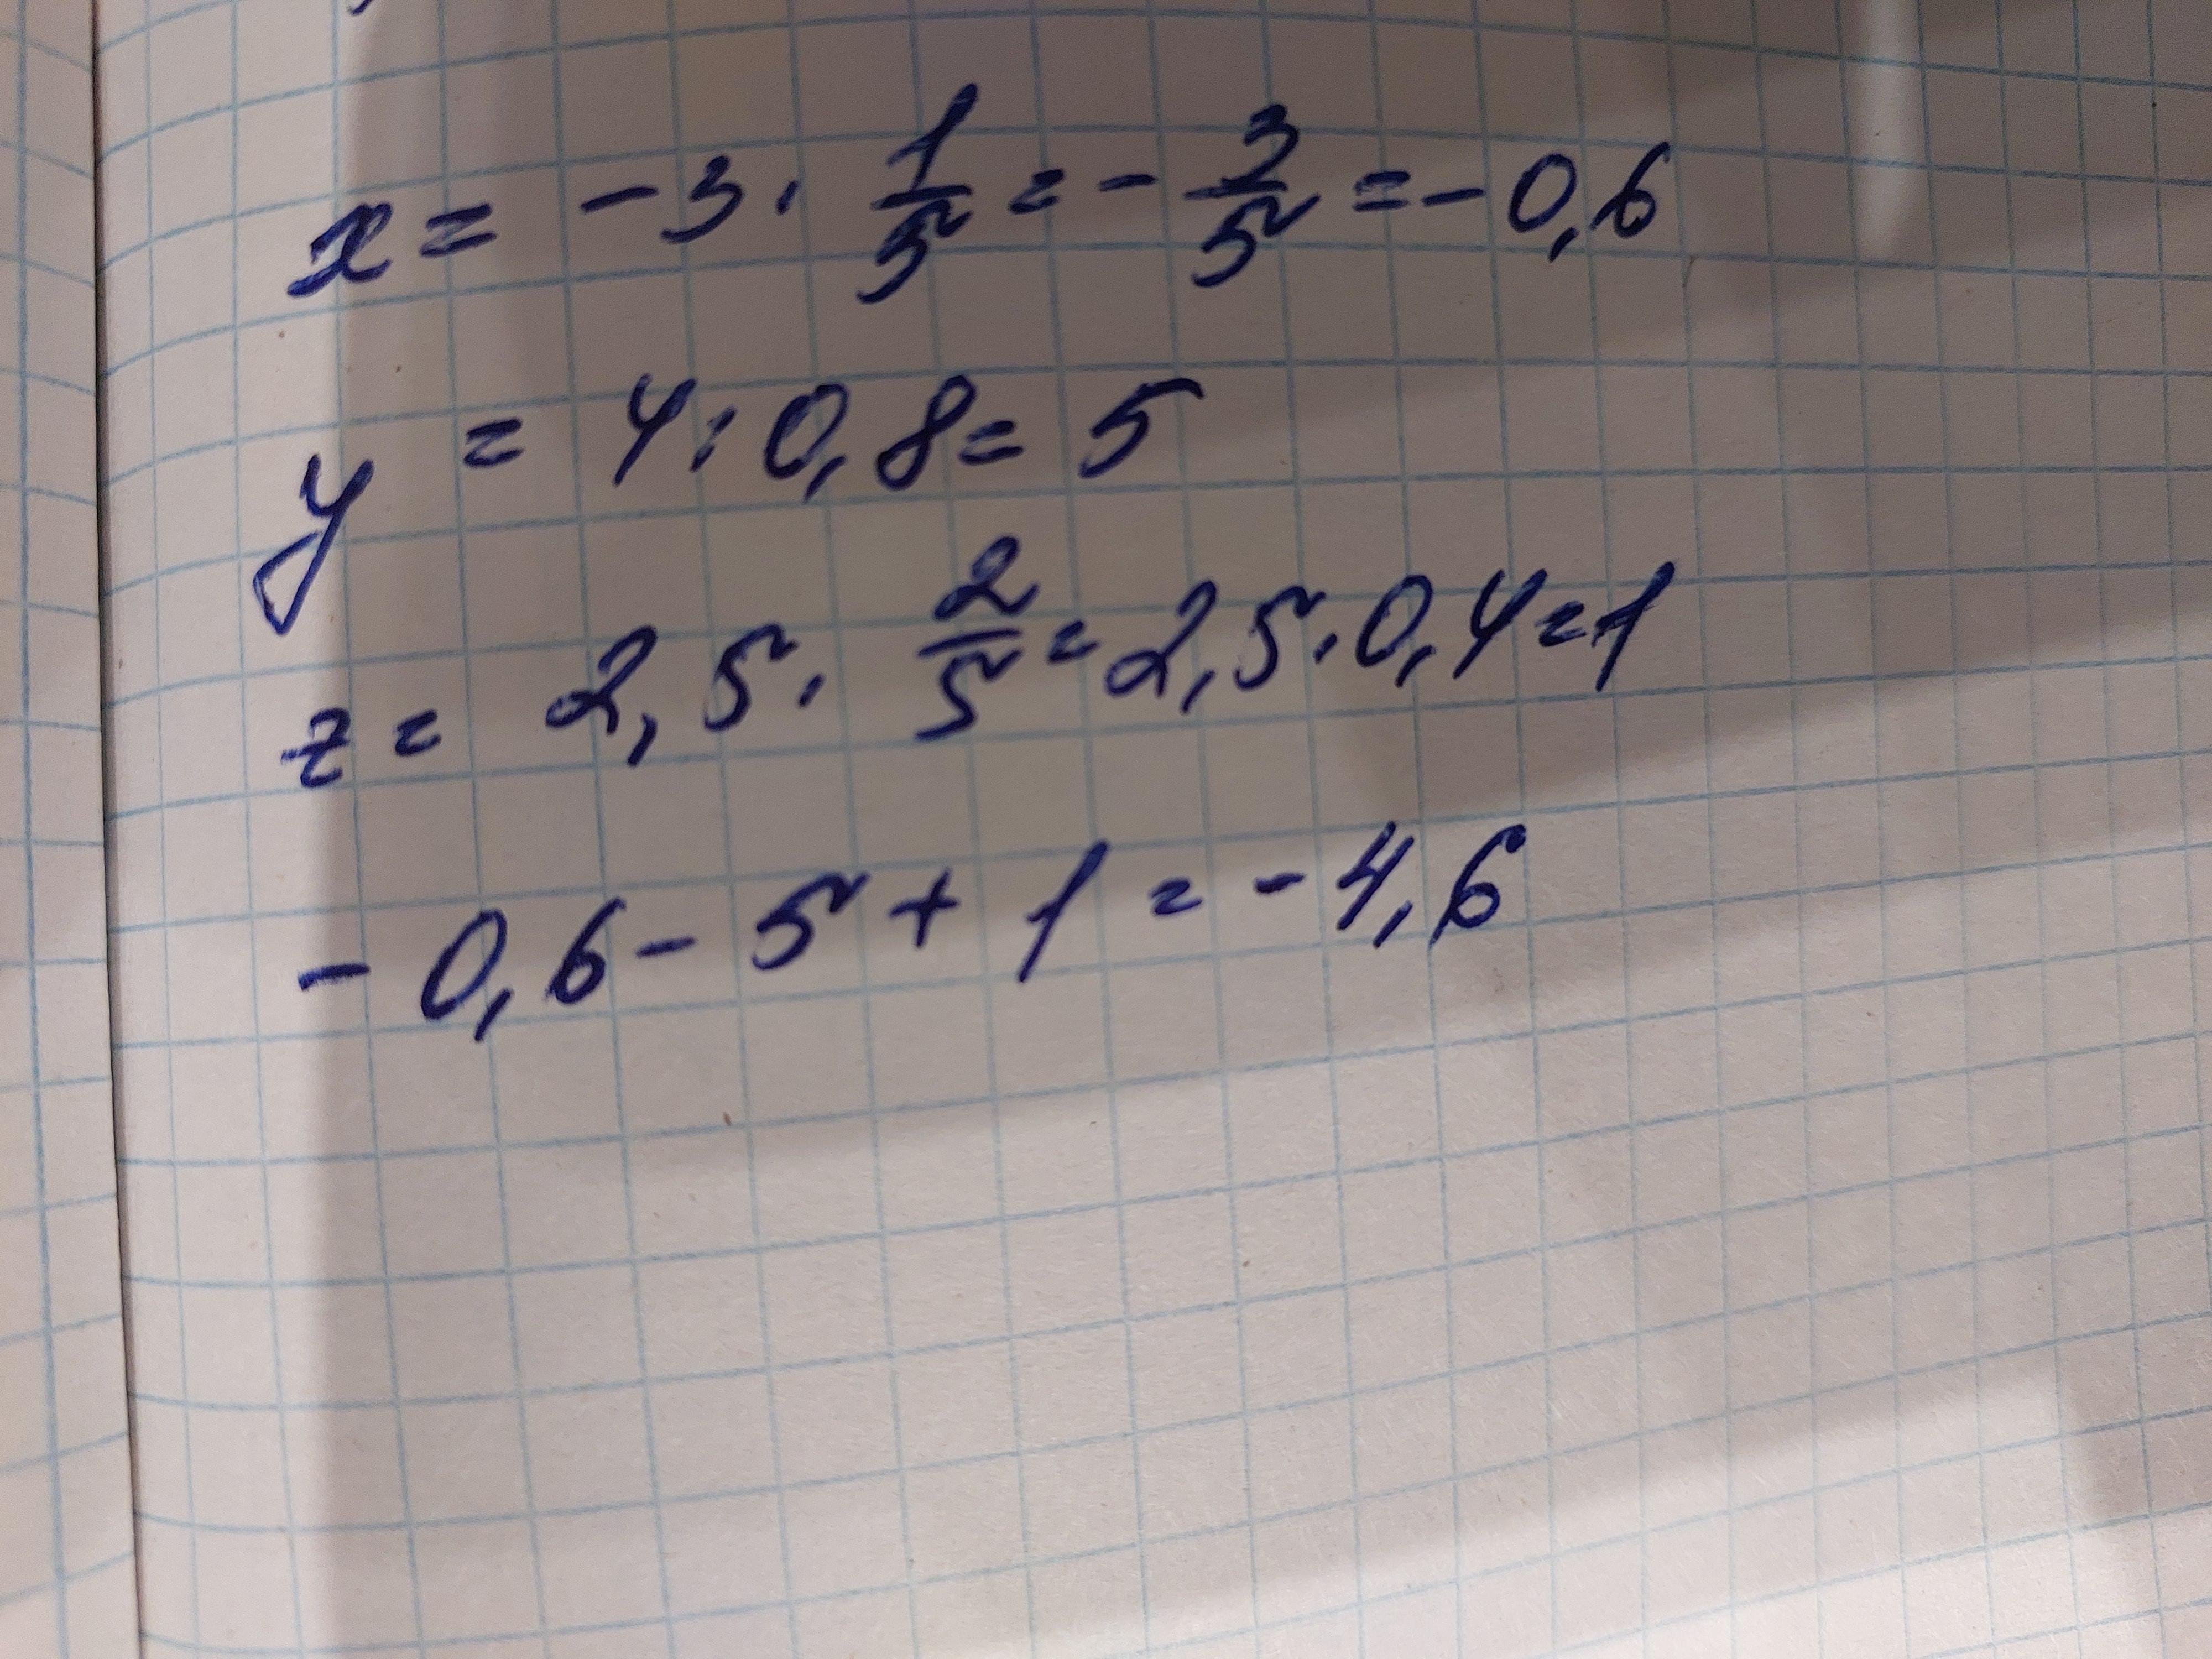 x = -3 · 1/5 = - 3/5 = - 0,6
y = 4 : 0,8 = 5
z = 2,5 · 2/5 = 2,5 · 0,4 = 1
- 0,6 - 5 + 1 = - 4,6